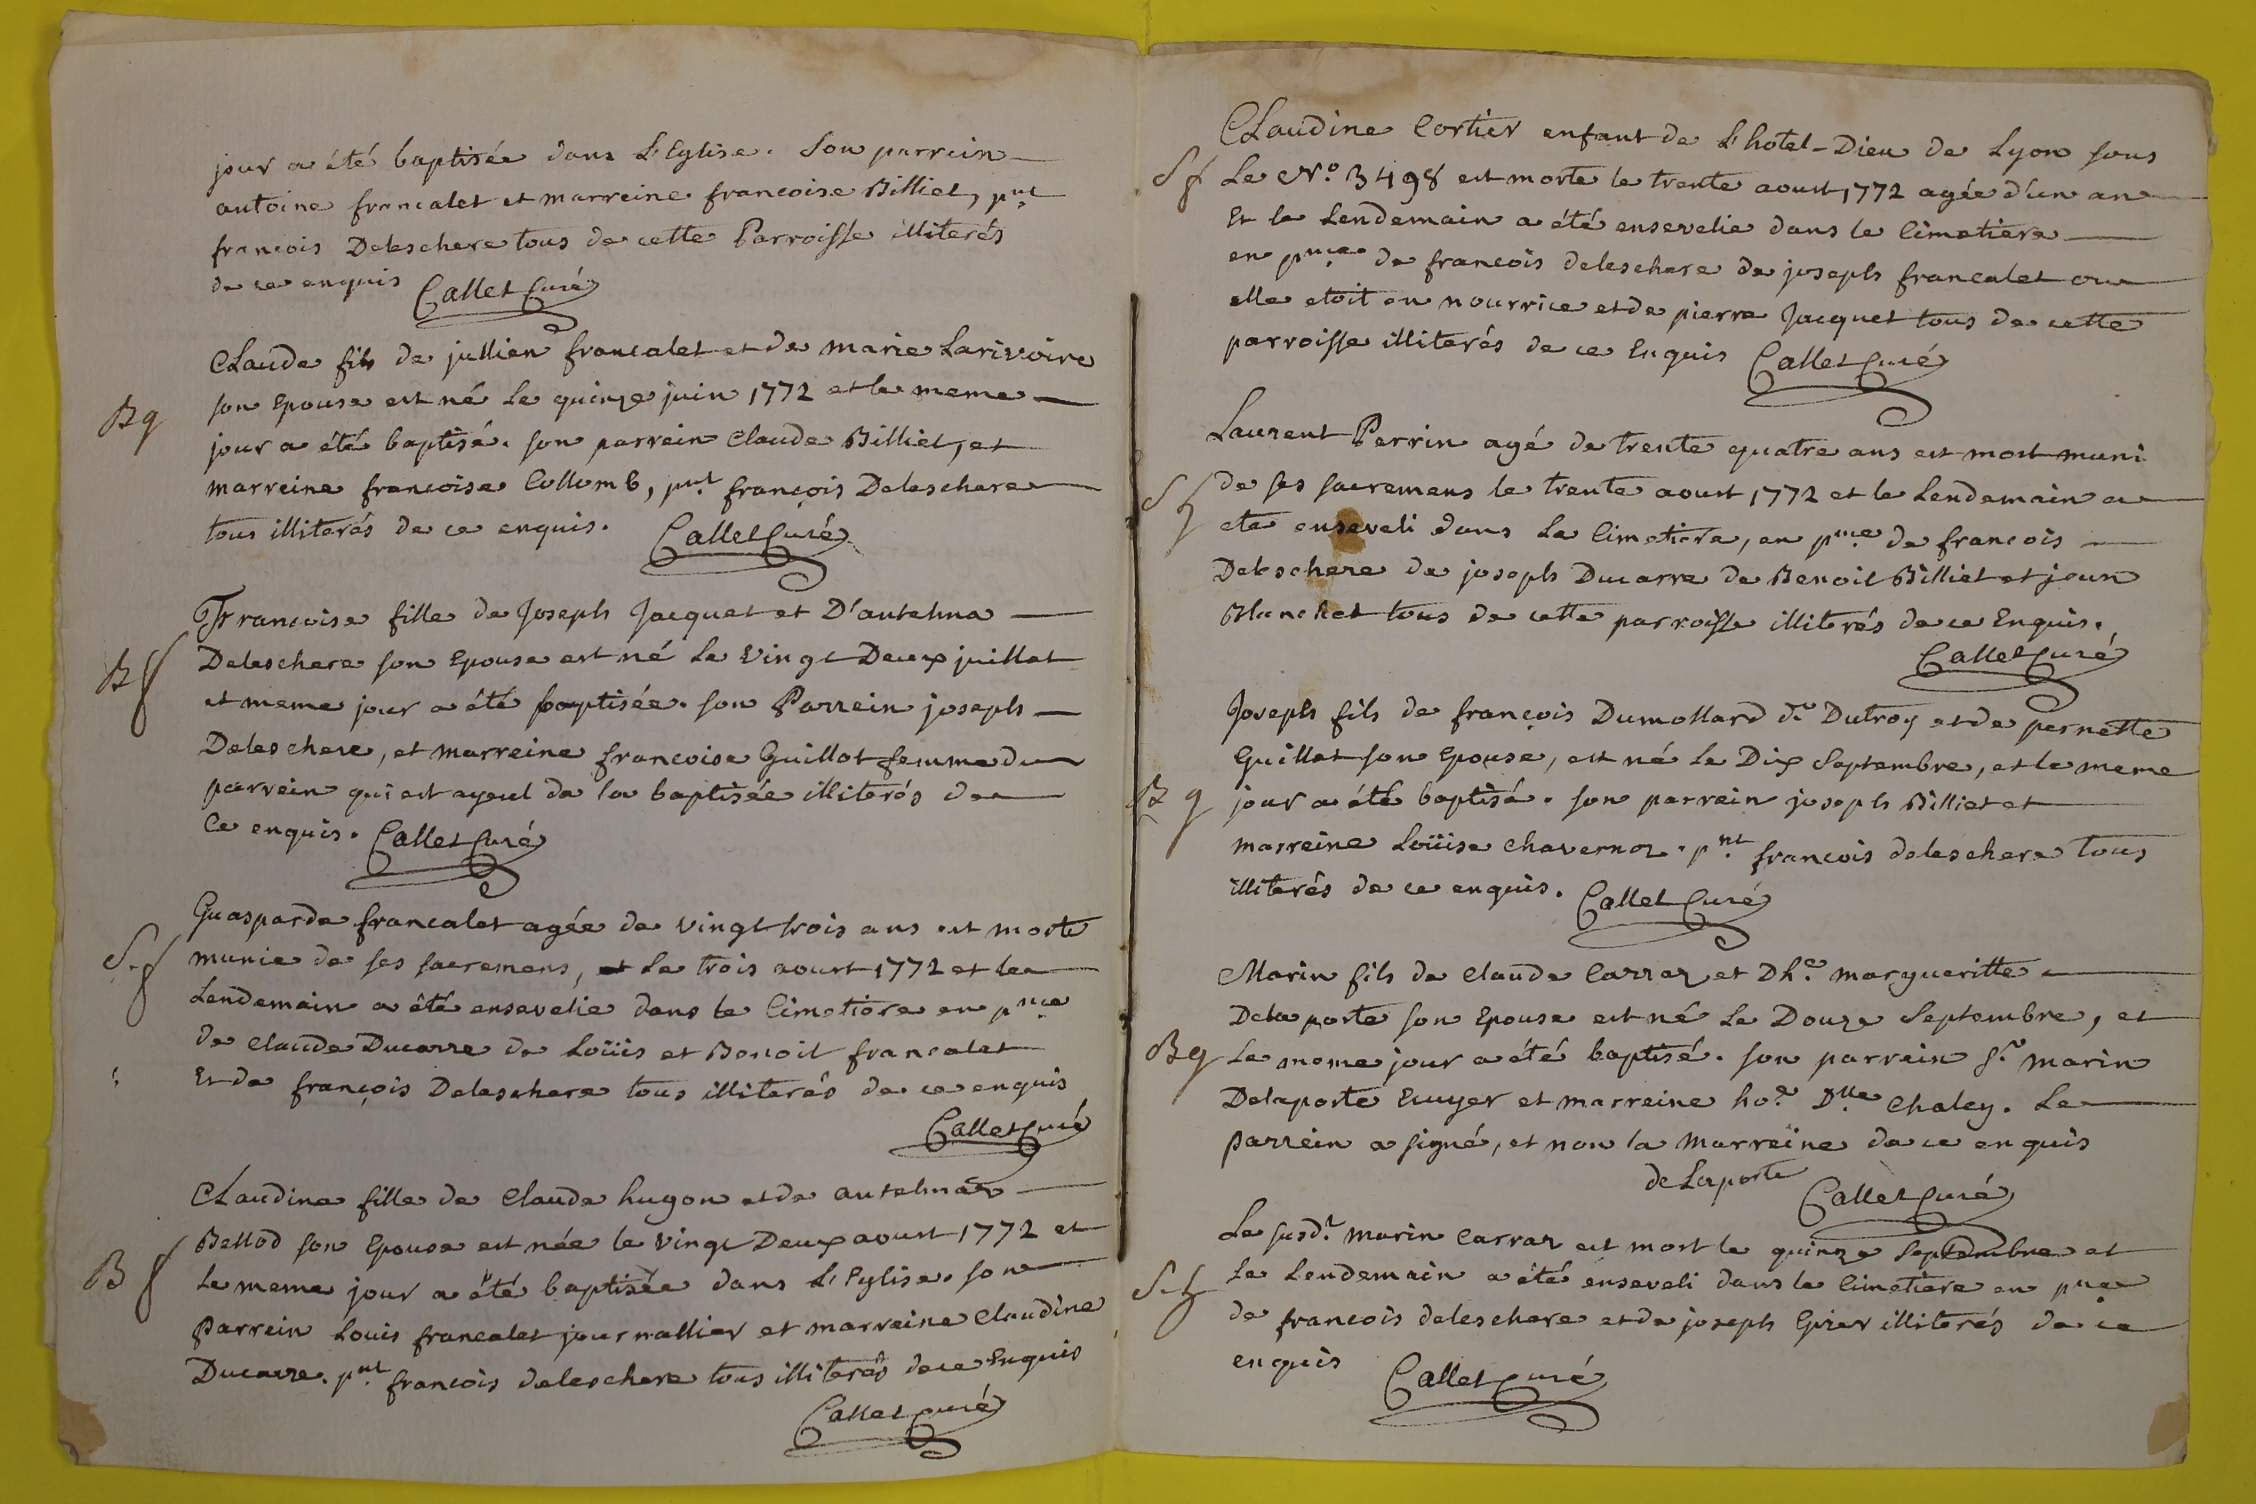 jour a été baptisée dans L'Eglise. Son parrein
antoine francalet et marreine francoise Billiet, pnt
francois Deleschere tous de cette Parroisse illiterés
de ce enquis Callet Curé
Claude fils de jullien francalet et de marie Larivoire
Bg
son Epouse est né le quinze juin 1772 et le meme
jour a été baptisé. son parrein Claude Billiet, et
marreine francoise Collomb, pnt françois Deleschere
tous illiterés de ce enquis. Callet Curé
Francoise fille de Joseph Jacquet et D'antelma
Bf
Deleschere son Epouse est né le vingt Deux juillet
et meme jour a été baptisée. son Parrein joseph
Deleschere, et marreine francoise Guillot femme du
parrein qui est ayeul de la baptisée illiterés de
ce enquis. Callet Curé
Guasparde francalet agée de vingt trois ans est morte
S.f
munie de ses sacremens, le trois aoust 1772 et le
Lendemain a été ensevelie dans le Cimetiere en pnce
de Claude Ducarre de Loüis et Benoit francalet
Et de françois Deleschere tous illiterés de ce enquis
Callet Curé
Claudine fille de Claude hugon et de antelma
B f
Bellod son Epouse est née le vingt Deux aoust 1772 et
le meme jour a été baptisée dans L'Eglise. son
parrein Louis francalet journallier et marreine Claudine
Ducarre. pnt francois deleschere tous illiterés de ce Enquis
Callet curé
Claudine Cortier enfant de L'hotel-Dieu de Lyon sous
Sf
Le No. 3498 est morte le trente aoust 1772 agée d'un an
Et le Lendemain a été ensevelie dans le Cimetiere
en pnce de francois deleschere de joseph francalet ou
elle etoit en nourrice et de pierre Jacquet tous de cette
parroisse illiterés de ce Enquis Callet Curé
Laurent Perrin agé de trente quatre ans est mort muni
S
de ses sacremens le trente aoust 1772 et le Lendemain a
eté enseveli dans le Cimetiere, en pnce de francois
Deleschere de joseph Ducarre de Benoit Billiet et jean
Blanchet tous de cette parroisse illiterés de ce Enquis.
Callet Curé
Joseph fils de françois Dumollard dt. Dutroy et de pernette
Guillot son Epouse, est né le Dix Septembre, et le meme
B g
jour a été baptisé. son parrein joseph Billiet et
marreine Loüise Chavernoz. pnt francois deleschere tous
illiterés de ce enquis. Callet Curé
Marin fils de Claude Carraz et Dhe. margueritte
Delaporte son Epouse est né le Douze Septembre, et
Bg
le meme jour a été baptisé. son parrein Sr. marin
Delaporte Ecuyer et marreine ho.e Dlle Chaley. Le
parrein a signé, et non la Marreine de ce enquis
de Laporte Callet Curé
Le susd.t marin Carraz est mort le quinze Septembre et
S.
le Lendemain a été enseveli dans le Cimetiere en pnce
de francois deleschere et de joseph illiterés de ce
enquis Callet curé